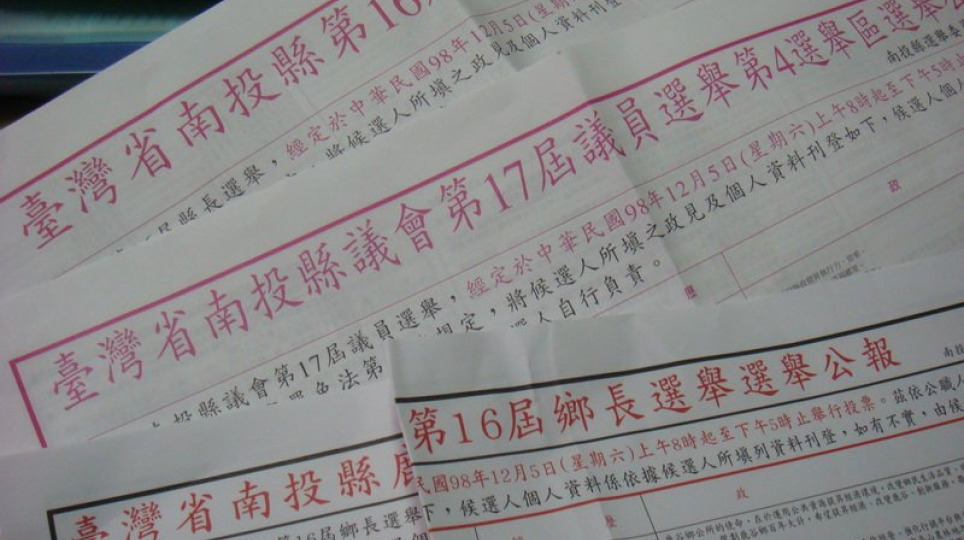 臺灣省南投縣第16
縣長選舉，經定於中華民國98年12月5日(星期
將候選人所填之政見及個人資料刊登
臺灣省南投縣議會第17屆議員選舉第4選舉區選舉
南投縣選舉委
投縣議會第17屆議員選舉，經定於中華民國98年12月5日(星期六)上午8時起至下午5時止
罷免法第
規定，將候選人所填之政見及個人資料刊登如下，候選人個人
人自行負責。
政
歷
第16屆鄉長選舉選舉公報
南投
民國98年12月5日(星期六)上午8時起至下午5時止舉行投票。茲依公職人
下，候選人個人資料係依據候選人所填列資料刊登，如有不實，由候
歷
政
臺灣省南投縣
16屆鄉長選舉